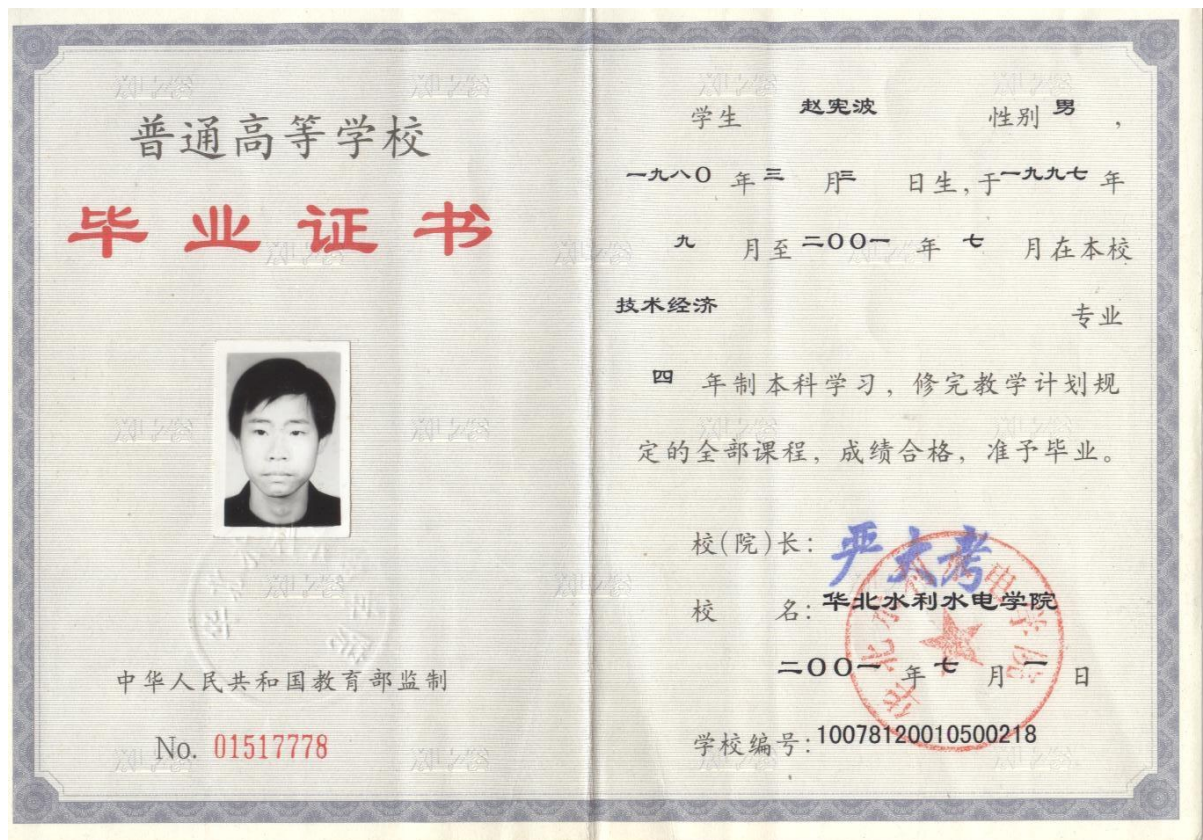 普通高等学校
毕业证书
中华人民共和国教育部监制
No. 01517778
学生 赵宪波 性别 男 ,
一九八〇 年 三 月 三 日生,于 一九九七 年
九 月至 二〇〇一 年 七 月在本校
技术经济 专业
四 年制本科学习,修完教学计划规
定的全部课程,成绩合格,准予毕业。
校(院)长: 严大考
校 名: 华北水利水电学院
二〇〇一 年 七 月 一 日
学校编号: 100781200105002​18
华北水利水电学院